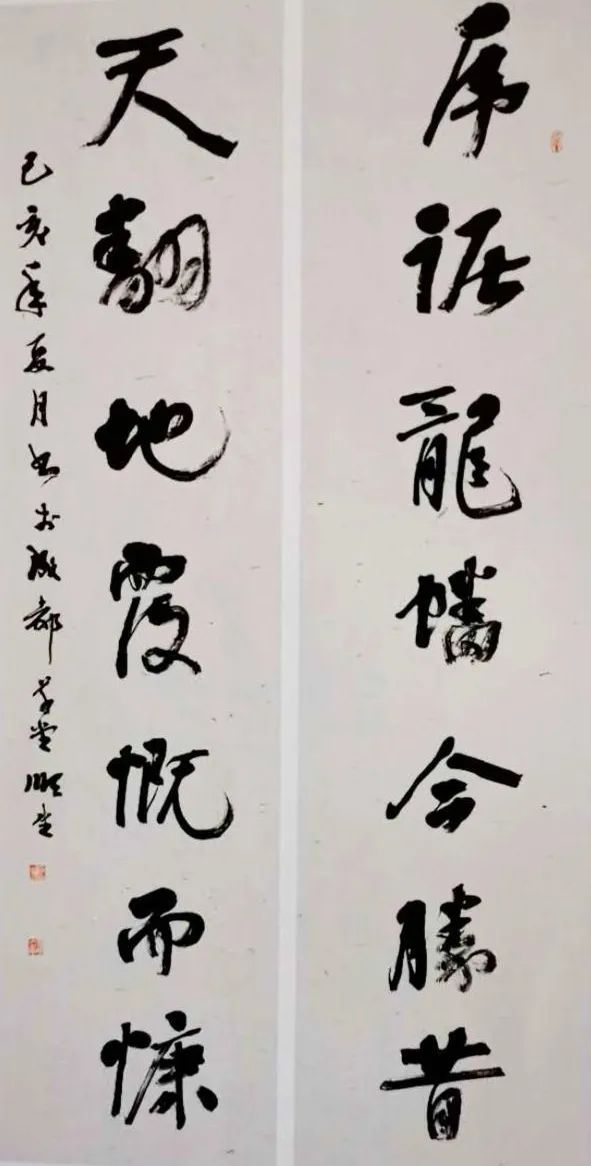 虎踞龍蟠今勝昔
天翻地覆慨而慷
己亥年夏月书於成都草堂